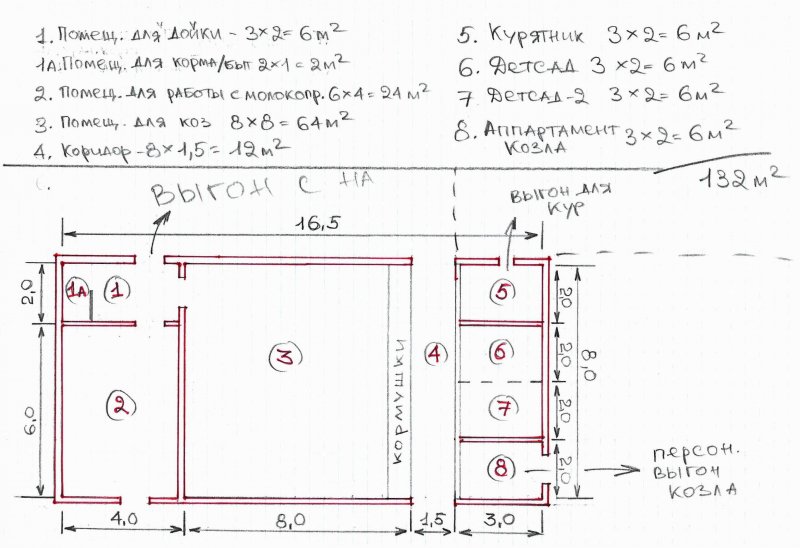 1. Помещ. для дойки - 3×2=6м²
1А. Помещ. для корма/быт 2×1=2м²
2. Помещ. для работы с молокопр. 6×4=24м²
3. Помещ. для коз 8×8=64м²
4. Коридор - 8×1,5=12м²
5. Курятник 3×2=6м²
6. Детсад 3×2=6м²
7 Детсад-2 3×2=6м²
8. Аппартамент 3×2=6м²
козла
132м²
Выгон с НА
Выгон для
кур
16,5
2,0
6,0
1А
1
2
3
кормушки
4
5
6
7
8
2,0
2,0
2,0
2,0
8,0
персон.
выгон
козла
4,0
8,0
1,5
3,0